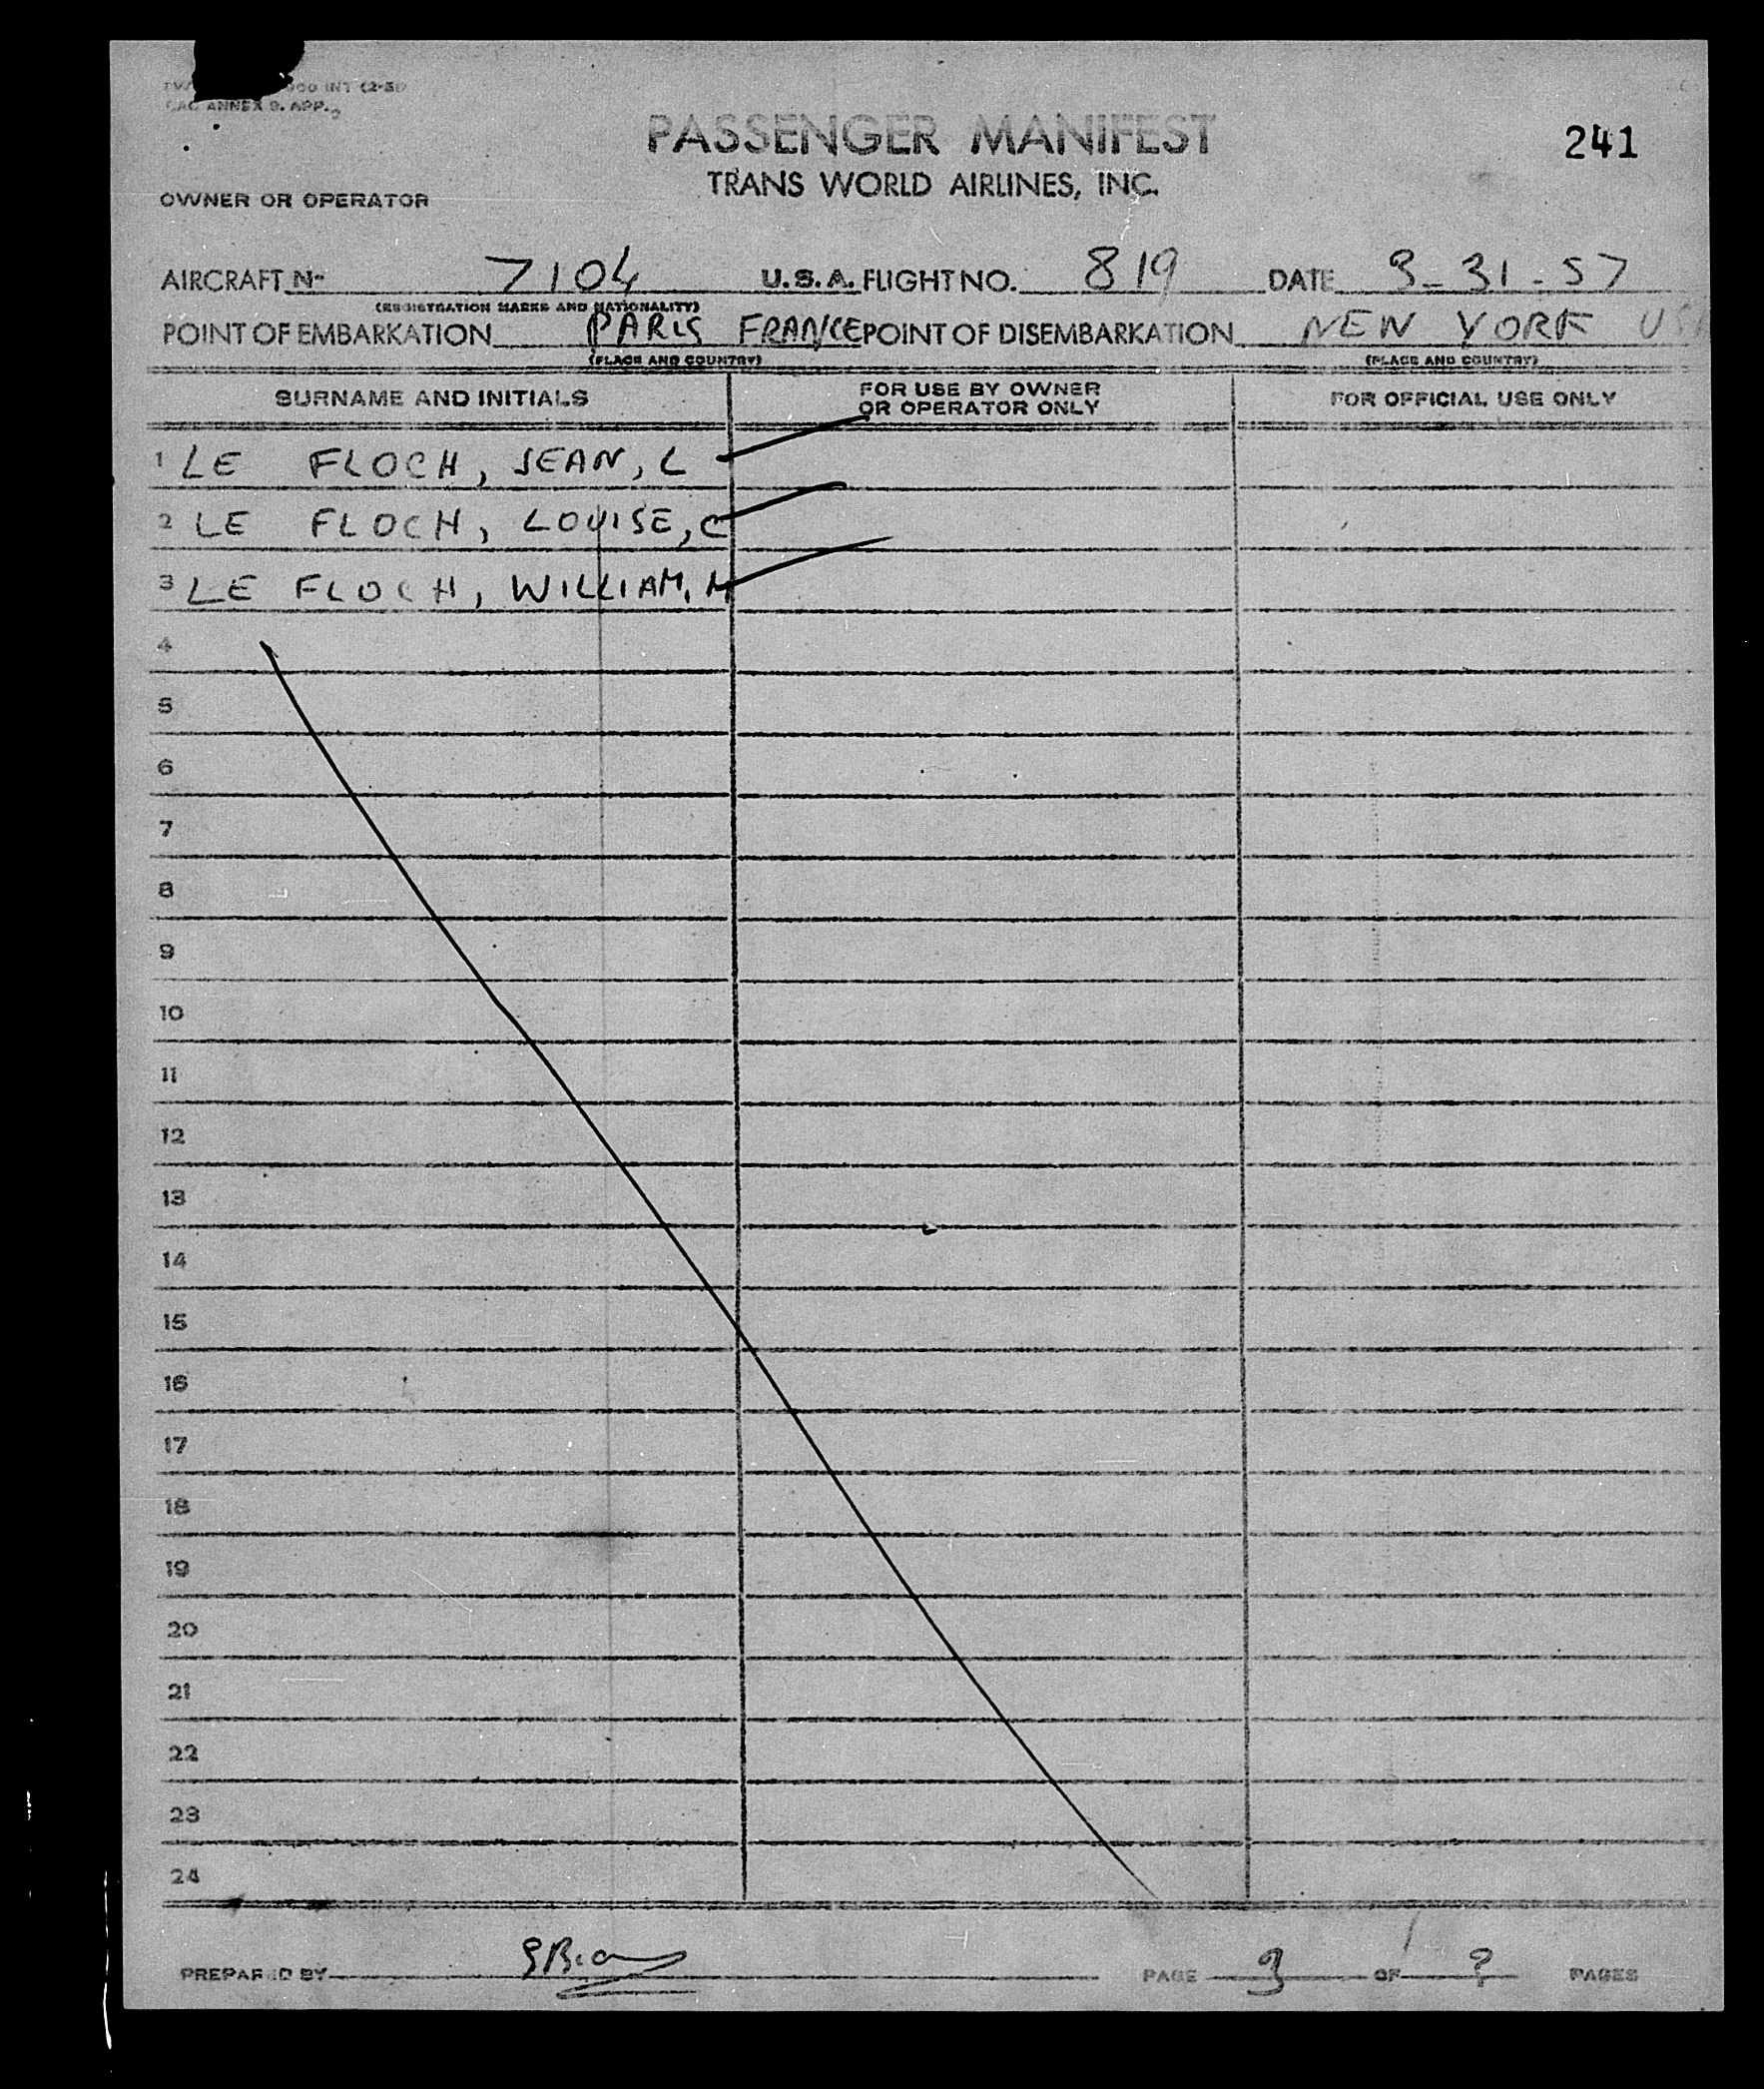 900 INT (2-51)
ANNEX 9. APP. 2
PASSENGER MANIFEST
241
TRANS WORLD AIRLINES, INC.
OWNER OR OPERATOR
AIRCRAFT No 7104 U.S.A. FLIGHT NO. 819 DATE 3-31-57
(REGISTRATION MARKS AND NATIONALITY)
POINT OF EMBARKATION PARIS FRANCE POINT OF DISEMBARKATION NEW YORK USA
(PLACE AND COUNTRY) (PLACE AND COUNTRY)
SURNAME AND INITIALS FOR USE BY OWNER OR OPERATOR ONLY FOR OFFICIAL USE ONLY
1 LE FLOCH, JEAN, L
2 LE FLOCH, LOUISE, C
3 LE FLOCH, WILLIAM, M
4
5
6
7
8
9
10
11
12
13
14
15
16
17
18
19
20
21
22
23
24
PREPARED BY PAGE 3 OF PAGES